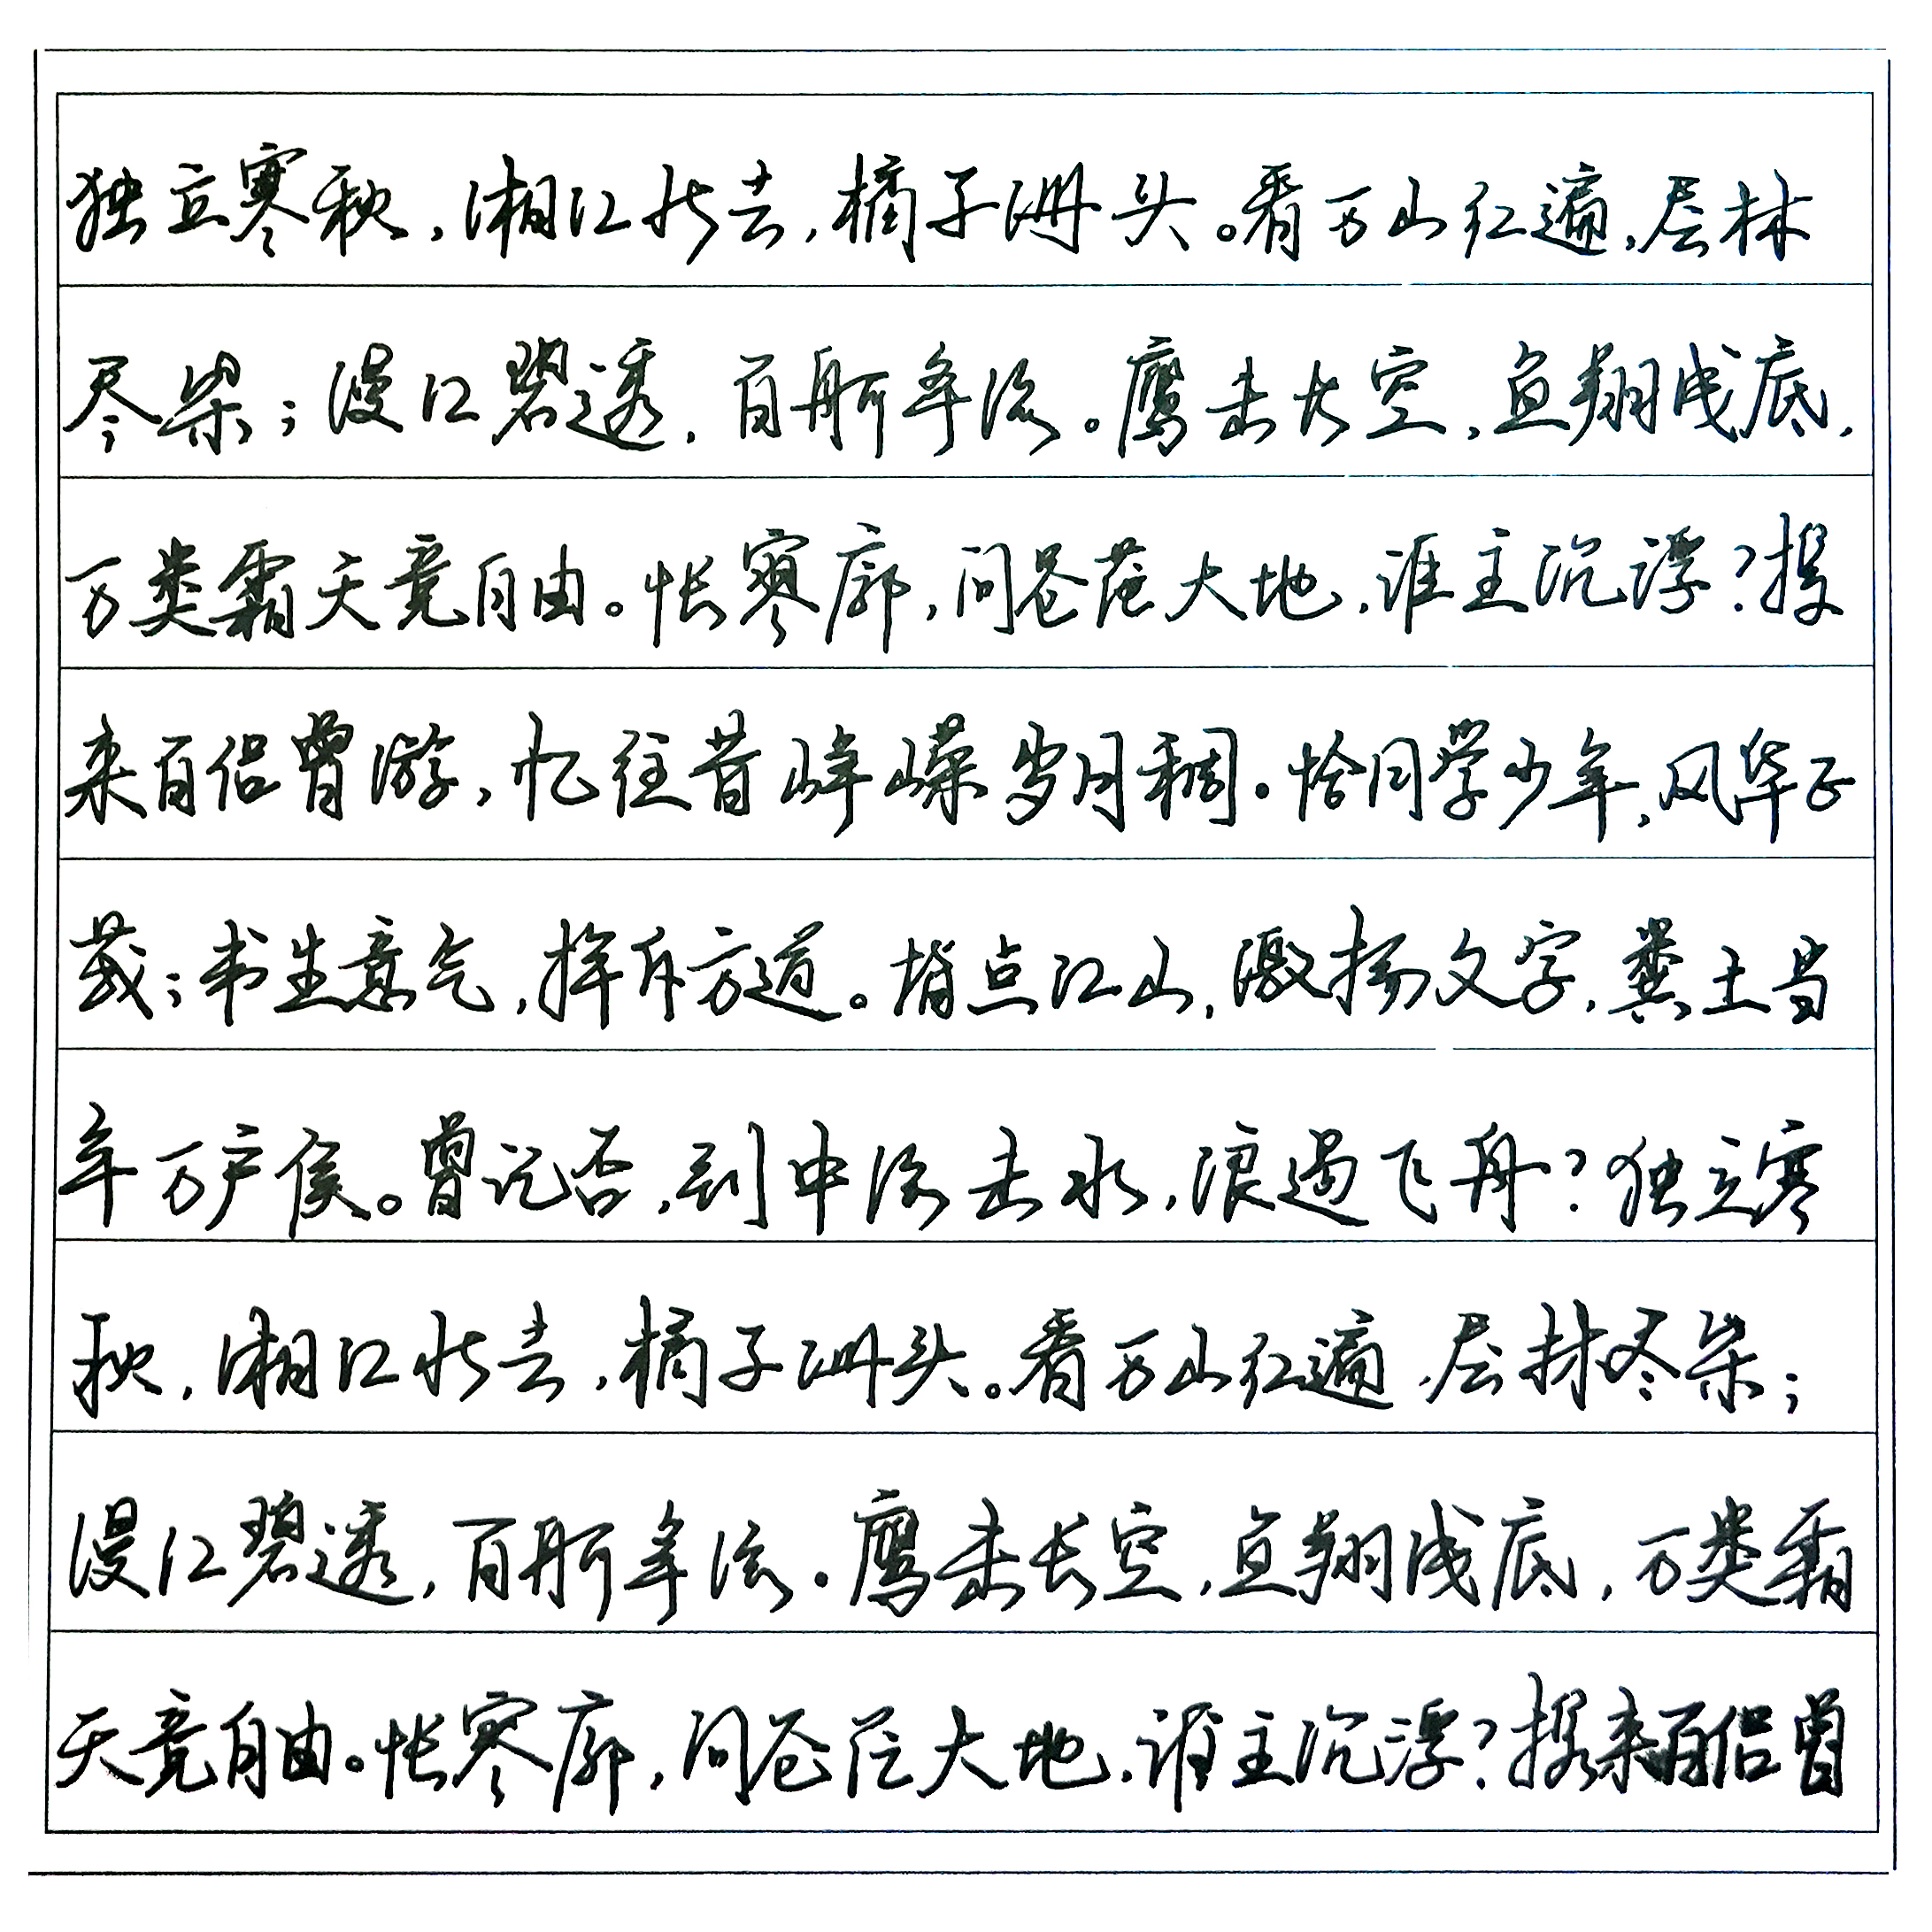 独立寒秋，湘江北去，橘子洲头。看万山红遍，层林
尽染；漫江碧透，百舸争流。鹰击长空，鱼翔浅底，
万类霜天竞自由。怅寥廓，问苍茫大地，谁主沉浮？携
来百侣曾游，忆往昔峥嵘岁月稠。恰同学少年，风华正
茂；书生意气，挥斥方遒。指点江山，激扬文字，粪土当
年万户侯。曾记否，到中流击水，浪遏飞舟？独立寒
秋，湘江北去，橘子洲头。看万山红遍，层林尽染；
漫江碧透，百舸争流。鹰击长空，鱼翔浅底，万类霜
天竞自由。怅寥廓，问苍茫大地，谁主沉浮？携来百侣曾